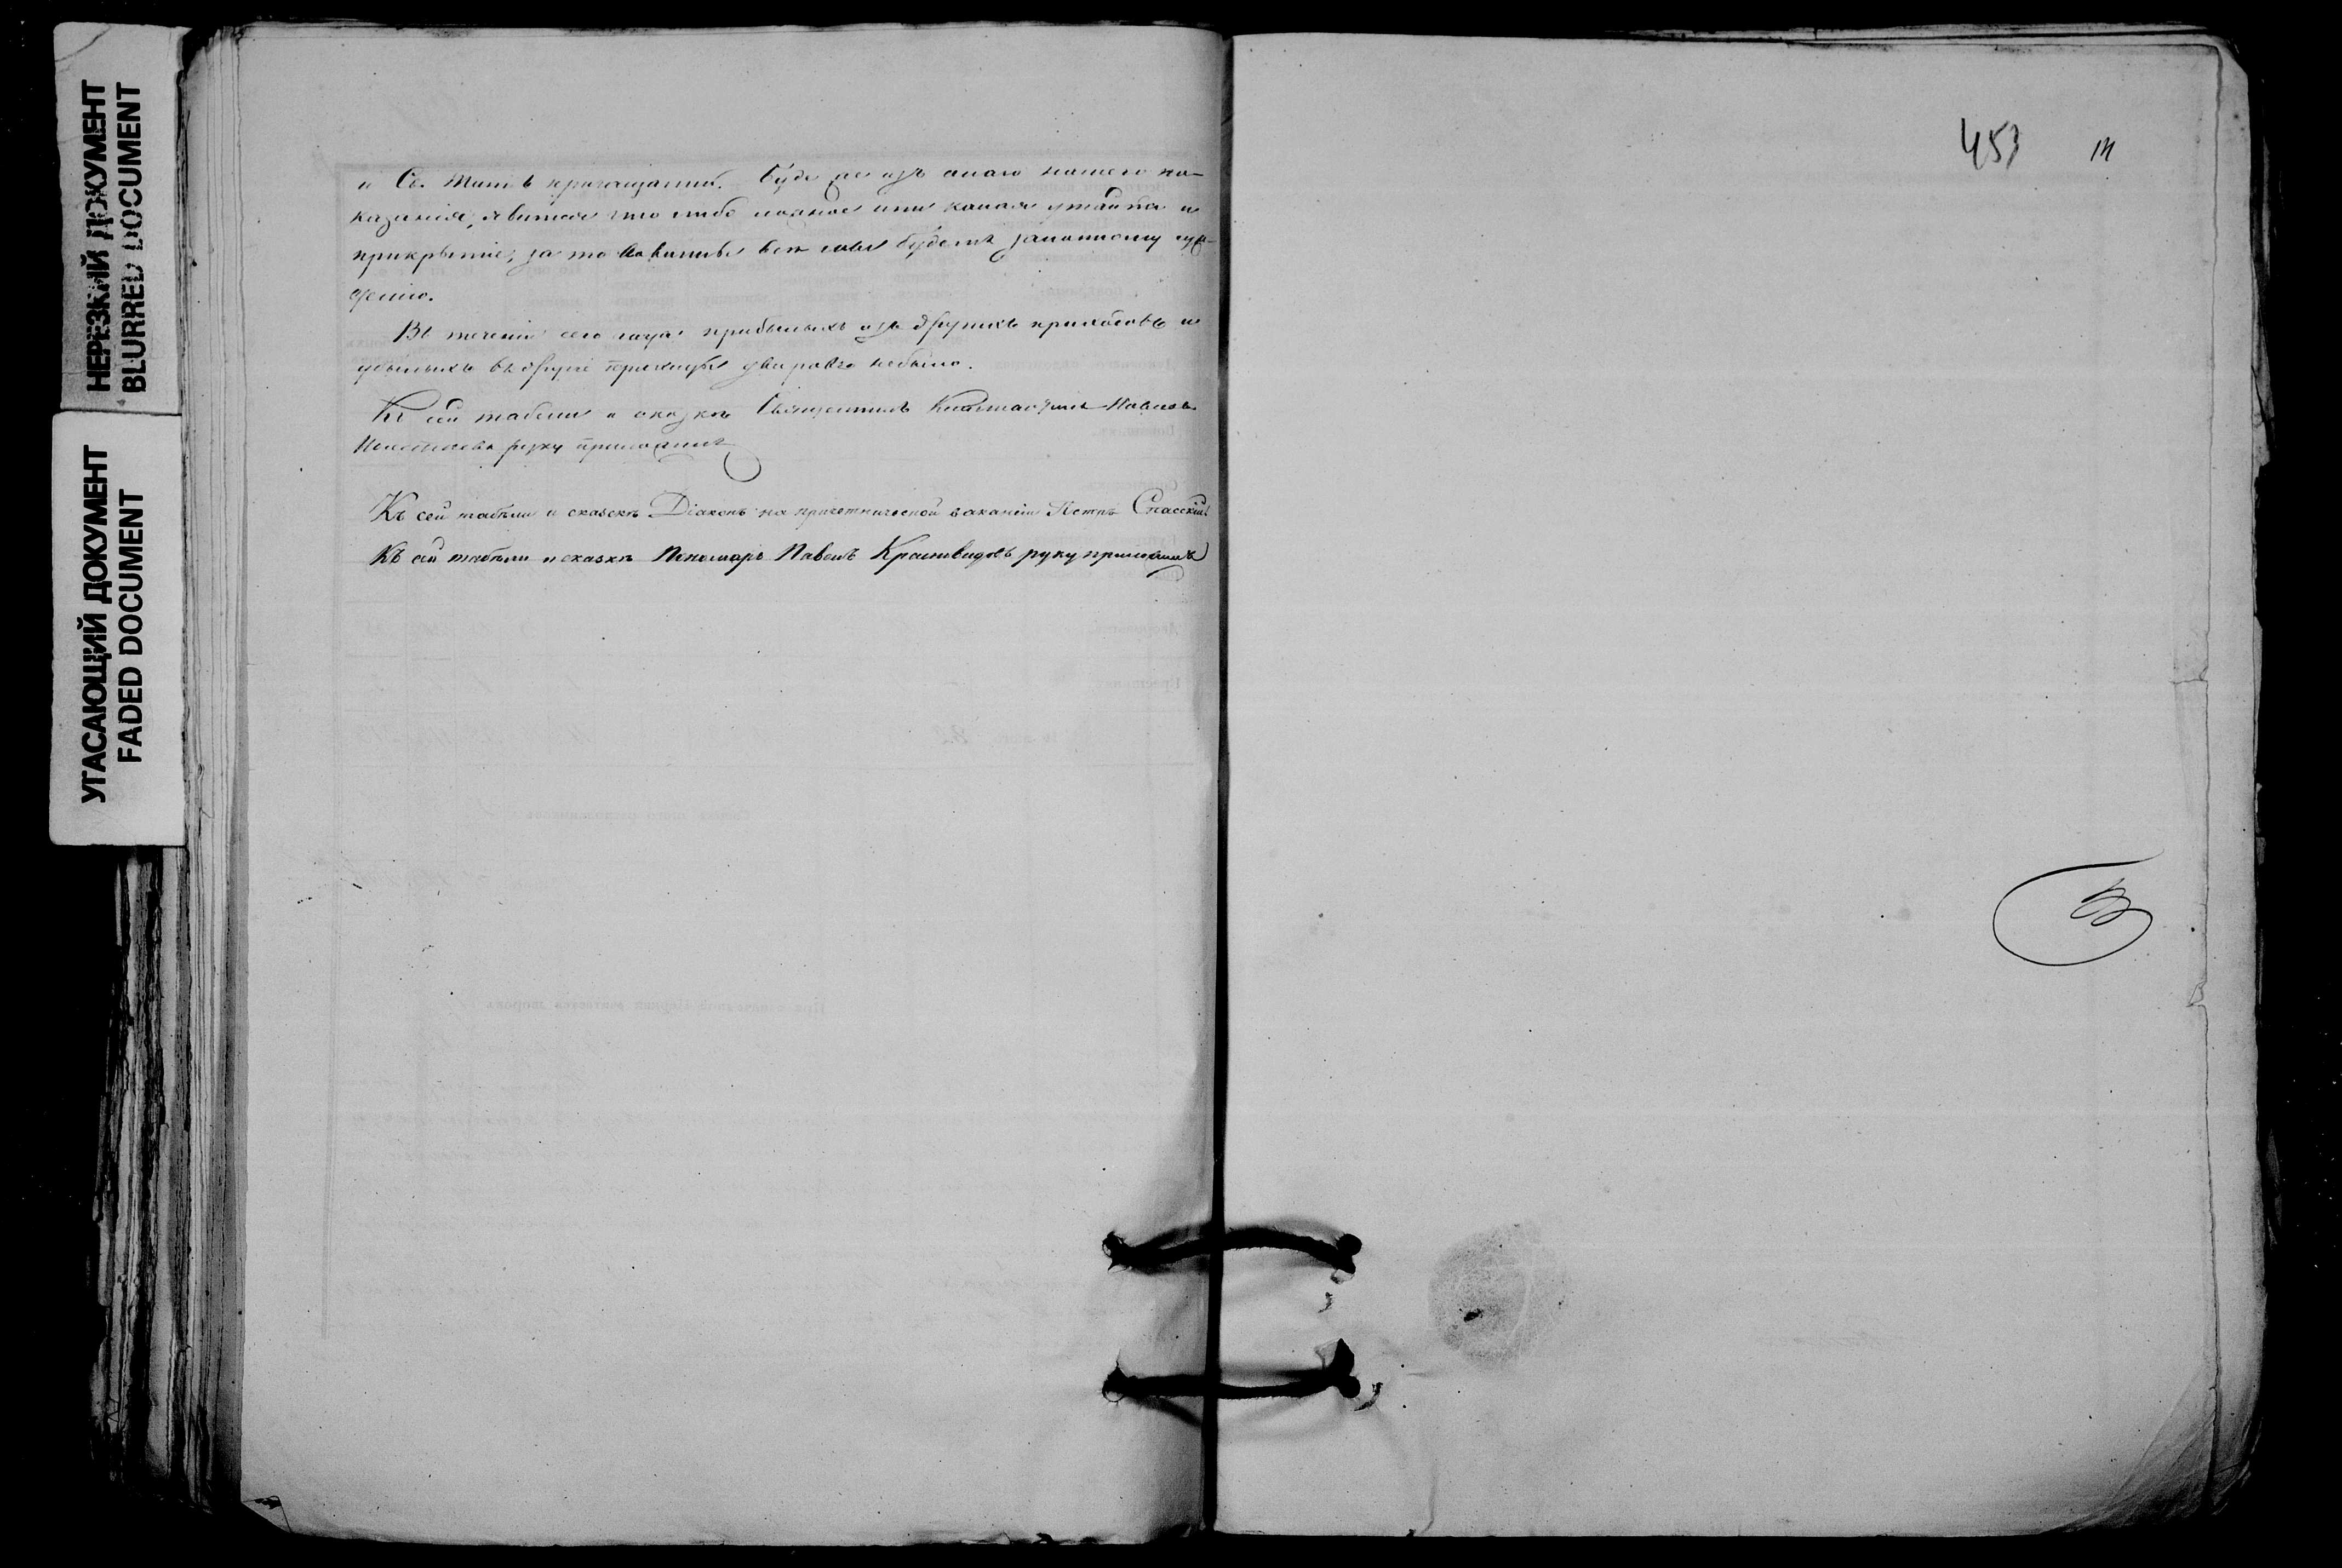 НЕРЕЗКИЙ ДОКУМЕНТ
BLURRED DOCUMENT
УГАСАЮЩИЙ ДОКУМЕНТ
FADED DOCUMENT
и Св. Таинъ причащались. Буде же изъ онаго нашего по-
казанія, явится что либо ложное или какая утайка и
прикрытіе, за то повинны всѣ мы будемъ законному суж-
денію.
Въ теченіи сего года прибылыхъ изъ другихъ приходовъ и
убылыхъ въ другіе приходы дворовъ небыло.
Къ сей табели и сказкѣ Священникъ Павловъ
руку приложилъ
Къ сей табели и сказкѣ Діаконъ на причетнической вакансіи Петръ Спасскій
Къ сей табели и сказкѣ Пономарь Павелъ Красовидовъ руку приложилъ
453